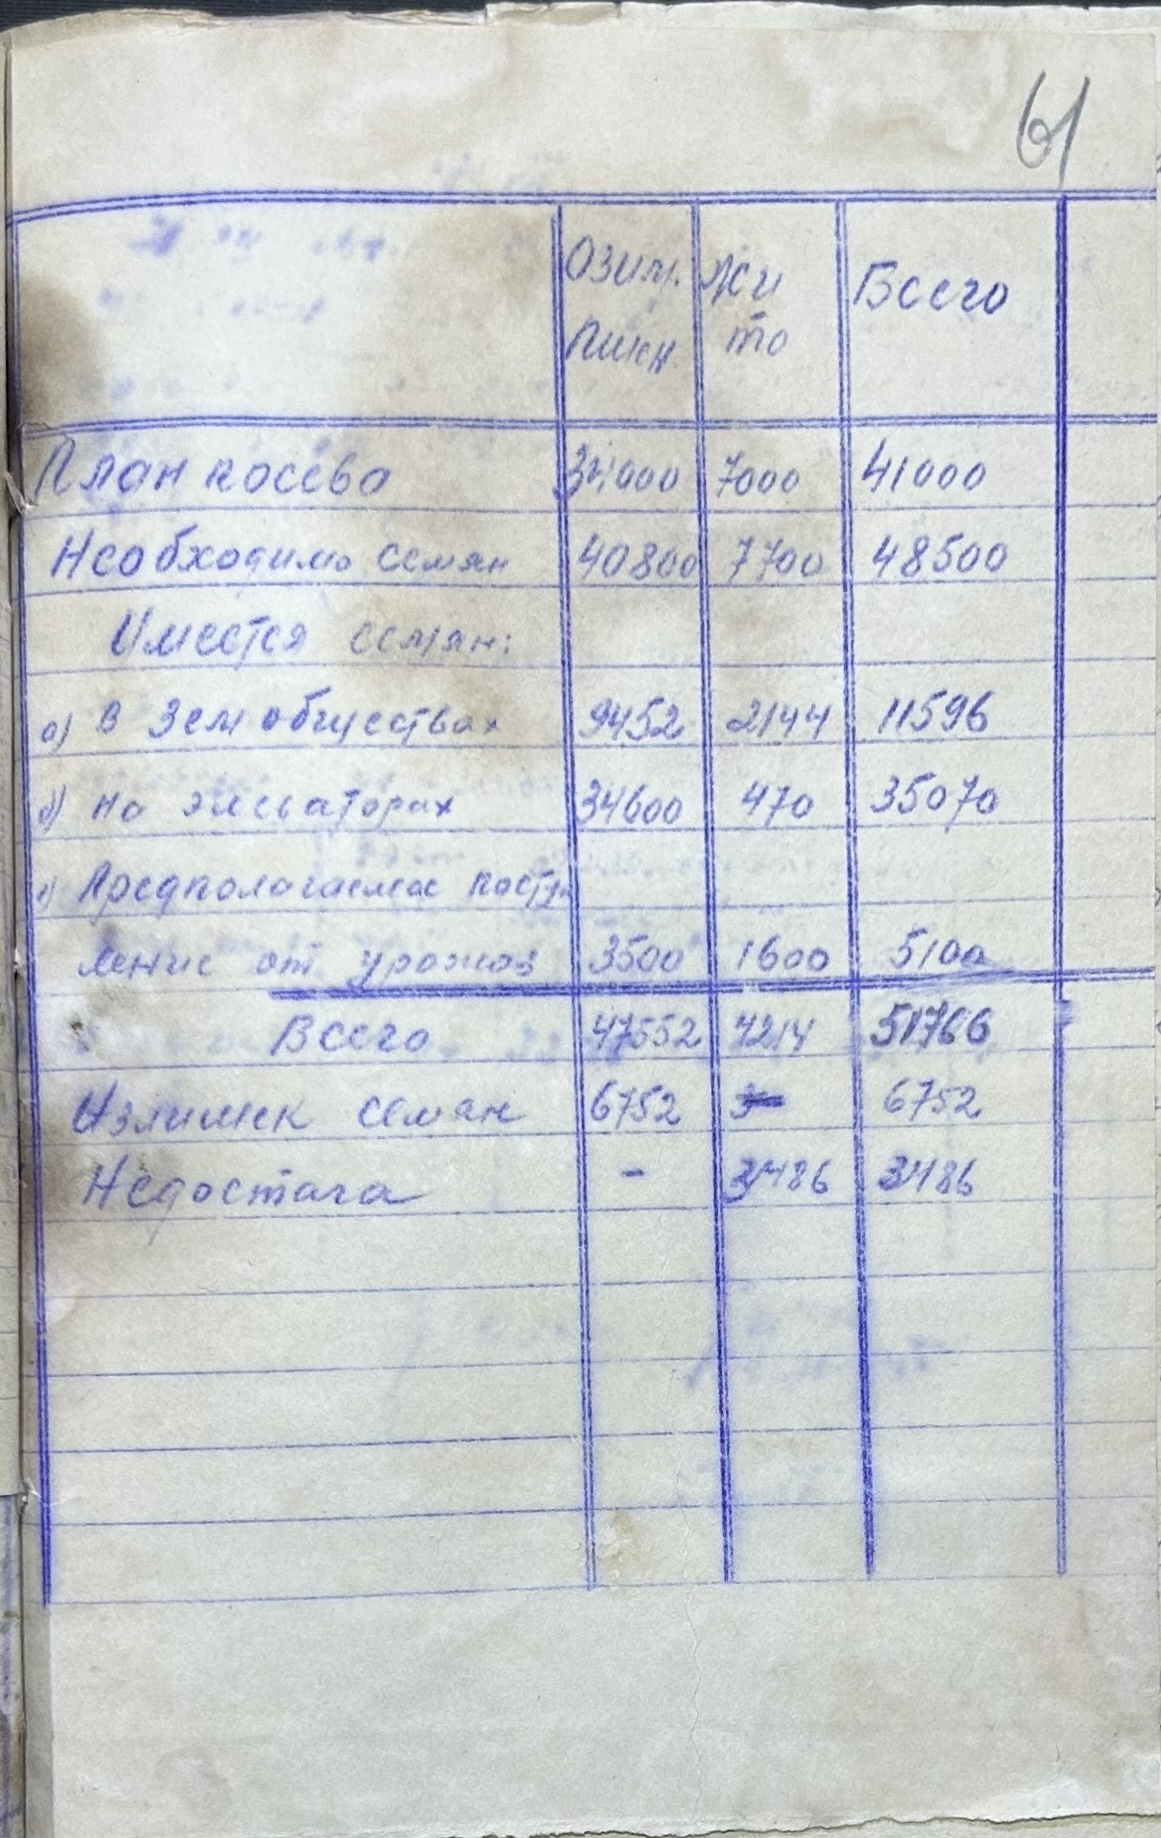 61
Озим. Жи Всего
Пшен. то
План посева 34000 7000 41000
Необходимо семян 40800 7700 48500
Имеется семян:
а) в Земобществах 9452 2144 11596
б) на элеваторах 34600 470 35070
Предполагаемое посту
ление от урожая 3500 1600 5100
Всего 47552 4214 51766
Излишек семян 6752 6752
Недостача - 3486 3486